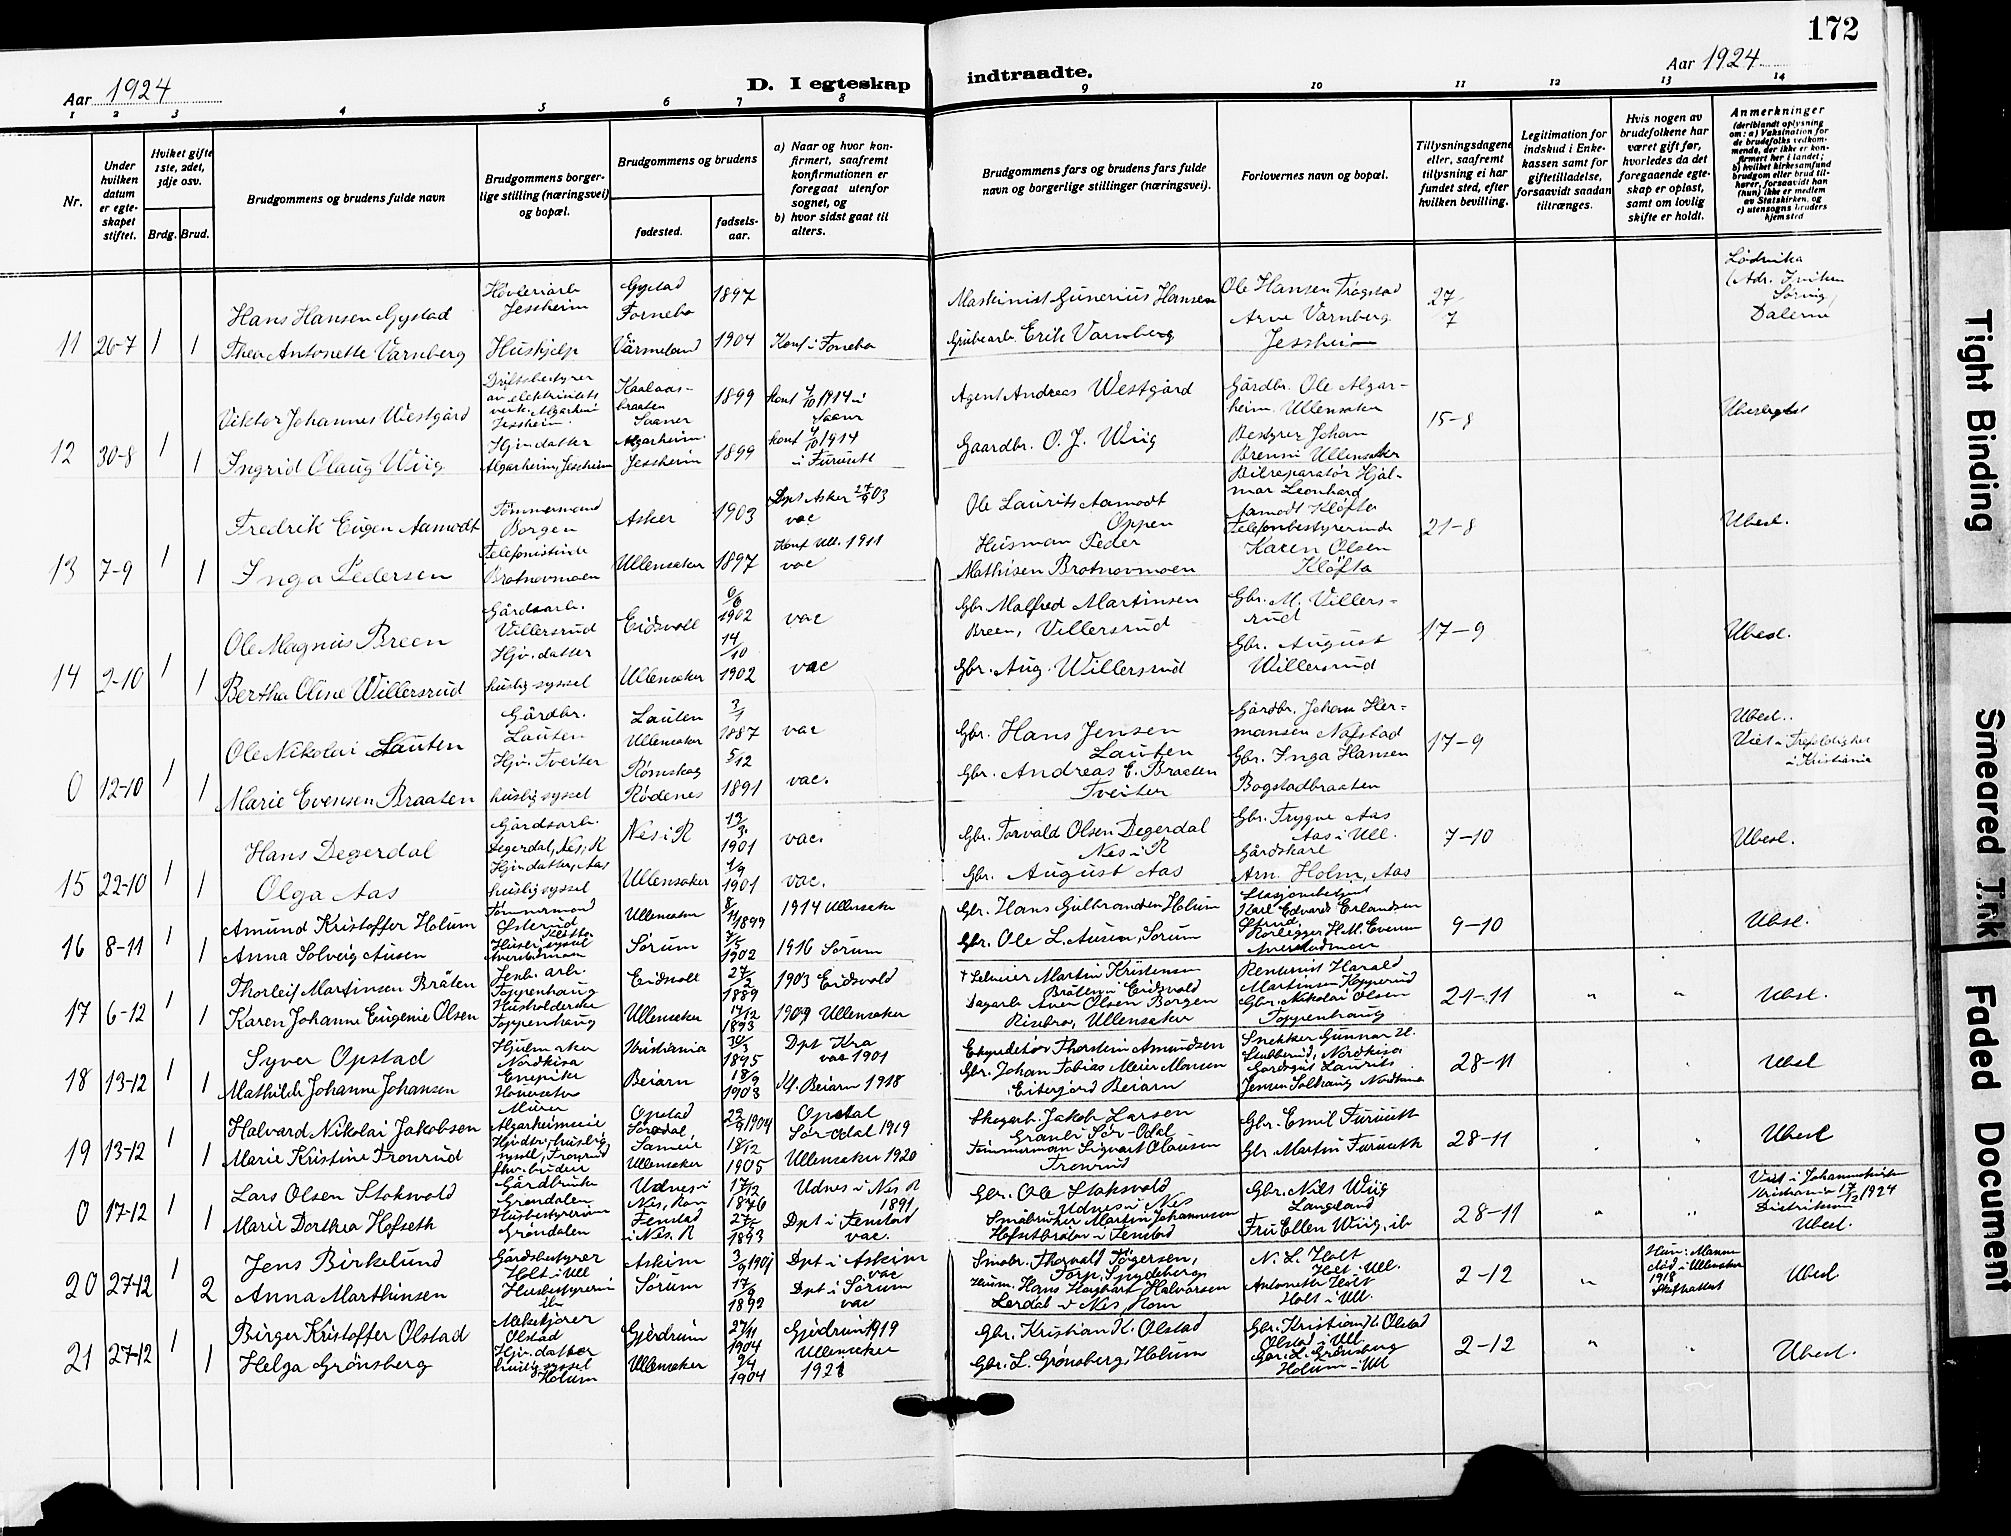 172
Aar 1924
D. I egteskap
indtraadte.
Aar 1924
1 2 3 4 5 6 7 8 9 10 11 12 13 14
Nr.
Under hvilken datum er egteskapet stiftet.
Hviket gifte 1ste, 2det, 3dje osv.
Brdg. Brud.
Brudgommens og brudens fulde navn
Brudgommens borgerlige stilling (næringsvei) og bopæl.
Brudgommens og brudens
fødested.
fødselsaar.
a) Naar og hvor konfirmert, saafremt konfirmationen er foregaat utenfor sognet, og
b) hvor sidst gaat til alters.
Brudgommens fars og brudens fars fulde navn og borgerlige stillinger (næringsvei).
Forlovernes navn og bopæl.
Tillysningsdagene eller, saafremt tillysning ei har fundet sted, efter hvilken bevilling.
Legitimation for indskud i Enkekassen samt for giftetilladelse, forsaavidt saadan tiltrænges.
Hvis nogen av brudefolkene har været gift før, hvorledes da det foregaaende egteskap er opløst, samt om lovlig skifte er holdt.
Anmerkninger
(deriblandt oplysning om: a) Vaksination for de brudefolks vedkommende, der ikke er konfirmert her i landet; b) hvilket kirkesamfund brudgom eller brud tilhører, forsaavidt han (hun) ikke er medlem av Statskirken, og c) utensogns bruders hjemsted
Hans Hansen Gystad
Høvleriarb. Jessheim
Gystad
1897
Maskinist Gunerius Hansen
Ole Hansen Trøgstad
27/7
11 26-7 1 1
Thea Antonette Varnberg
Hushjelp
Värmeland
1904
Konf i Fornebo
Grubearb. Erik Varnberg
Arve Varnberg
Jessheim
Dalerne
Viktor Johannes Westgård
Driftsbestyrer av elektricitets verk. Algarheim Jessheim.
Kaalaasbraaten
1899
Agent Andreas Westgård
Gårdbr. Ole Algarheim Ullensaker
15-8
12 30-8 1 1
Ingrid Olaug Wiig
Hjv. datter Algarheim, Jessheim
Algarheim Jessheim
1899
konf 4/10 1914 i Furuset
Gaardbr. O. J. Wiig
Bestyrer Johan Brenni Ullensaker
Fredrik Eugen Aamodt
Tömmermand Borgen
Asker
1903
Dpt Asker 27/9 03
vac
Ole Laurits Aamodt
Oppen
Bilreparatør Hjalmar Leonhard Aamodt Kløfta
21-8
Ubesl.
13 7-9 1 1
Inga Pedersen
Telefonistinde Brotnovmoen
Ullensaker
1897
Konf Ull. 1911
vac
Husman Peder Mathisen Brotnovmoen
Telefonbestyrerinde Karen Olsen Kløfta
Ole Magnus Breen
Gårdsarb. Villersrud
Eidsvoll
6/6 1902
vac
Gbr. Malfred Martinsen Breen, Villersrud
Gbr. M. Villersrud
17-9
Ubesl.
14 2-10 1 1
Bertha Oline Willersrud
Hjv. datter huslig syssel
Ullensaker
14/10 1902
vac
Gbr. Aug. Willersrud
Gbr. August Willersrud
Ole Nikolai Lauten
Gårdbr. Lauten
Lauten Ullensaker
3/1 1887
vac
Gbr. Hans Jensen Lauten
Gårdbr. Johan Hermansen Nafstad
17-9
Ubesl.
Viet i Trefoldighet i Kristiania
0 12-10 1 1
Marie Evensen Braaten
Hjv. Tveiter huslig syssel
Rømskog Rødenes
5/12 1891
vac.
Gbr. Andreas E. Braaten Tveiter
Gbr. Inga Hansen Bogstadbraaten
Hans Degerdal
Gårdsarb. Degerdal, Nes, R
Nes i R
13/3 1901
vac.
Gbr. Torvald Olsen Degerdal Nes i R
Gbr. Trygve Aas Aas i Ull.
7-10
Ubesl.
15 22-10 1 1
Olga Aas
Hjv. datter, Aas huslig syssel
Ullensaker
1/9 1901
vac.
Gbr. August Aas
Gårdskarl Arn. Holm, Aas
Amund Kristoffer Holum
Tømmermand
Ullensaker
8/11 1899
1914 Ullensaker
Gbr. Hans Gulbrandsen Holum
Karl Edvard Erlandsen
9-10
Ubesl.
16 8-11 1 1
Anna Solveig Ausen
Huslig syssel
Sørum
7/5 1902
1916 Sørum
Gbr. Ole L. Ausen, Sørum
Rørlegger H. M. Evensen
Thorleif Martinsen Bråten
Jenb. arb. Toppenhaug
Eidsvoll
27/2 1889
1903 Eidsvold
Martin Kristensen Bråten i Eidsvold
Rentenist Harald Martinsen Kopperud
21-11 " "
Ubesl.
17 6-12 1 1
Karen Johanne Eugenie Olsen
Husholderske Toppenhaug
Ullensaker
17/12 1893
1909 Ullensaker
Dagarb. Aven Olsen Borgen Risebro, Ullensaker
Gbr. Nikolai Olsen Toppenhaug
Syver Opstad
Hjulmaker Nordkisa
Kristiania
30/3 1895
Dpt Kra
vac 1901
Ekspeditør Thorstein Amundsen
Snekker Gunnar H. Stubberud, Nordkisa
28-11
Ubesl
18 13-12 1 1
Mathilde Johanne Johansen
Enepike
Beiarn
18/9 1903
Kf. Beiarn 1918
Gbr. Johan Tobias Meier Monsen Eiterjord Beiarn
Laurits Jensen Solhaug Nordkisa
Halvard Nikolai Jakobsen
Murer
Opstad Sørodal
22/9 1904
Opstal
Sør-Odal 1919
Skogarb. Jakob Larsen Granli Sør-Odal
Gbr. Emil Furuseth
28-11
Ubesl
19 13-12 1 1
Marie Kristine Tronrud
Hjv. dtr., huslig syssel, Tronrud
Ullensaker
18/12 1905
Ullensaker 1920
Tømmerman Sigvart Olausen Tronrud
Gbr Martin Furuseth
Lars Olsen Stokvold
Gårdbruker Grøndalen
Udnes i Nes, Rom
17/12 1876
Udnes i Nes R 1891
Gbr. Ole Stoksvold Udnes i Nes
Gbr. Nils Wiig Langeland
28-11 " "
Viet i Johanneskirken Kristiania 17/12 1924
Ubesl.
0 17-12 1 1
Marie Dorthea Hofseth
Husbestyrerinne Grøndalen
Fenstad i Nes. R
1893
Dpt i Fenstad
vac.
Småbruker Martin Johannesen Hofsetbråten i Fenstad
Fru Ellen Wiig, ib
Jens Birkelund
Gårdsbestyrer Holt i Ull
Askim
3/9 1901
Dpt i Askim
vac
Småbr. Thorvald Tøgersen, Torp, Spydeberg
N. L. Holt Holt i Ull.
2-12 "
Hun: Mannen død i Ullensaker 1918
Ubesl
20 27-12 1 2
Anna Marthinsen
Husbestyrerin ib
Sørum
17/9 1892
Dpt i Sørum
vac
Husm. Hans Hagbart Halvorsen Lerdal i Nes, Rom
Antonette Holt Holt i Ull.
Birger Kristoffer Olstad
Melkekjører Olstad
Gjerdrum
27/11 1904
Gjerdrum 1919
Gbr. Kristian K. Olstad
Gbr. Kristian K. Olstad Olstad i Ull.
2-12 " "
Ubesl.
21 27-12 1 1
Helga Grønsberg
Hjv. datter huslig syssel Holum
Ullensaker
9/4 1904
Ullensaker
Gbr. L. Grønsberg, Holum
Gbr. L. Grønsberg Holum i Ull
Tight Binding
Smeared Ink
Faded Document